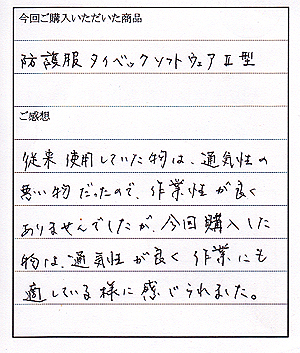 今回ご購入いただいた商品
防護服 タイベックソフトウェアⅡ型
ご感想
従来使用していた物は、通気性の
悪い物だったので、作業性が良く
ありませんでしたが、今回購入した
物は、通気性が良く作業にも
適している様に感じられました。